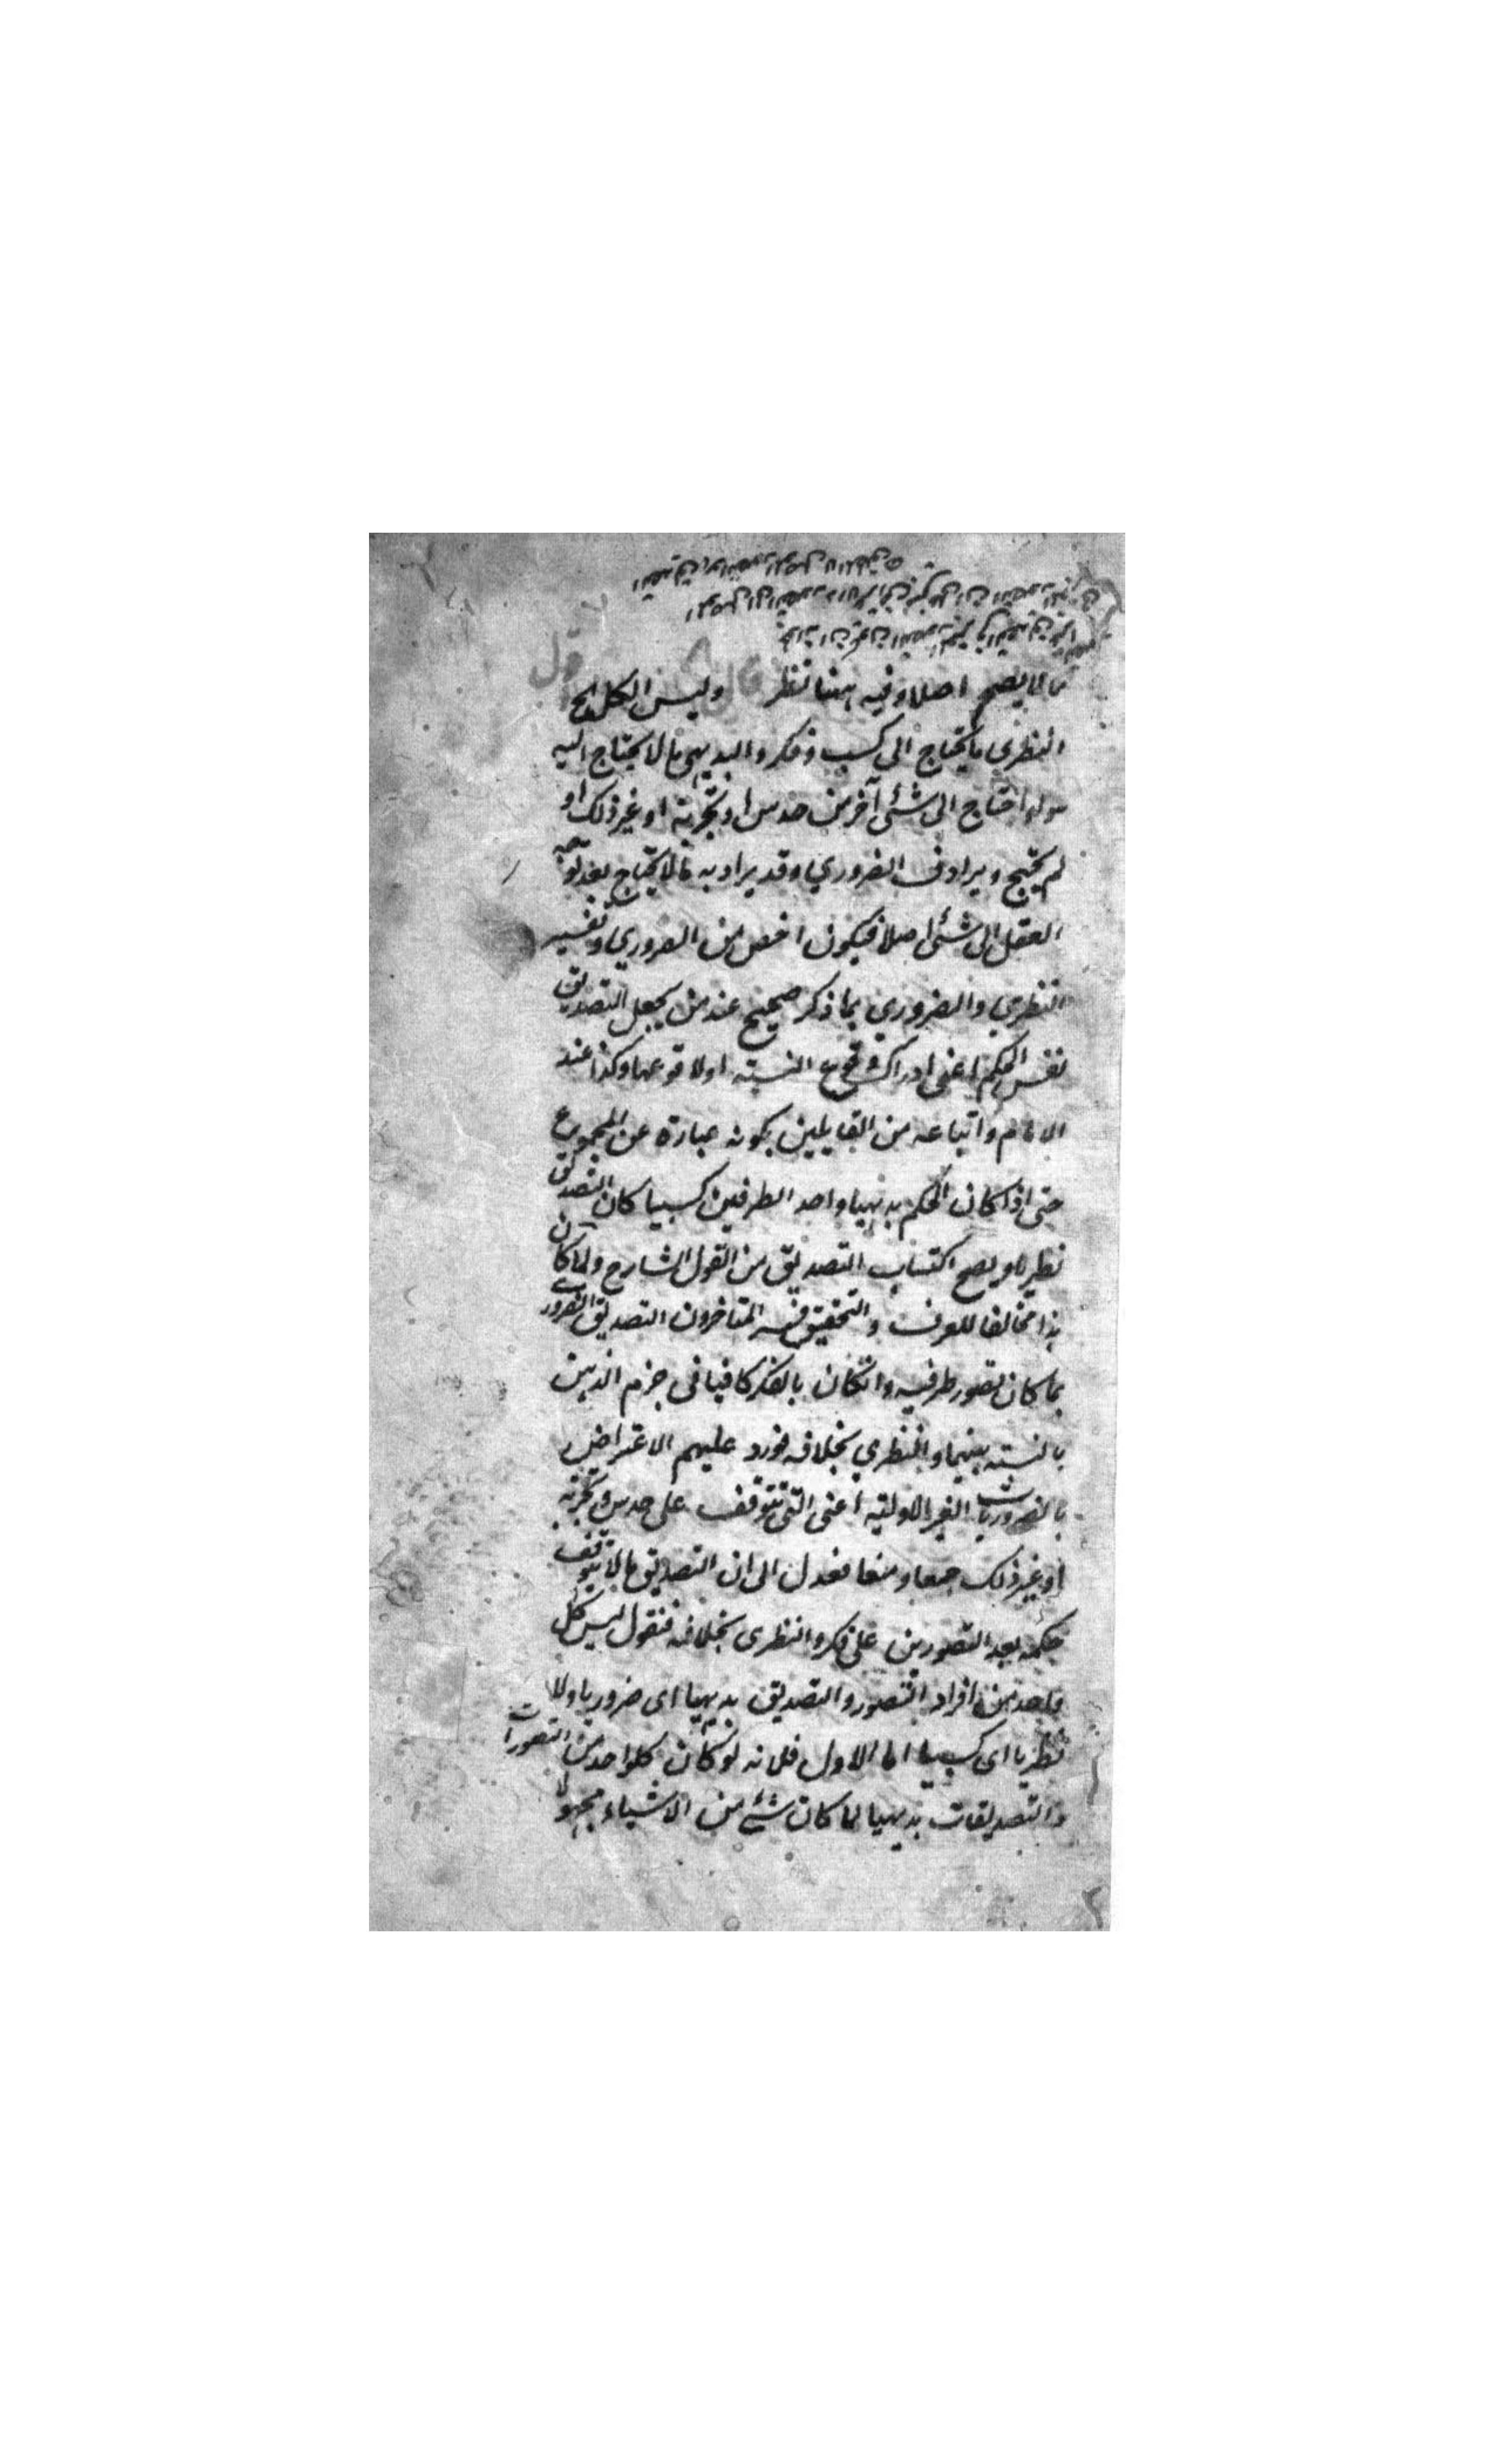 مما لا يصح اصلا وفيه ههنا نظر قال وليس الكل الخ اقول
النظري ما يحتاج الى كسب وفكر والبديهي ما لا يحتاج اليه
سواء احتاج الى شئ آخر من حدس او تجربة او غير ذلك او
لم يحتج ويرادف الضروري وقد يراد به ما لا يحتاج بعد توجه
العقل الى شئ اصلا فيكون اخص من الضروري وتفسير
النظري والضروري بما ذكر صحيح عند من يجعل التصديق
نفس الحكم اعنى ادراك وقوع النسبته اولا وقوعها وكذا عند
الامام واتباعه من القايلين بكونه عبارة عن المجموع
حتى اذا كان الحكم بديهيا واحد الطرفين كسبيا كان التصديق
نظريا ويصح اكتساب التصديق من القول الشارح ولما كان
هذا مخالفا للعرف والتحقيق فسر المتاخرون التصديق الضروري
بما كان تصور طرفيه وانكان بالفكر كافيا فى جزم الذهن
بالنسبته بينهما والنظري بخلافه فورد عليهم الاعتراض
بالضروريات الغير الاوليه اعنى التى تتوقف على حدس وتجربة
او غير ذلك جمعا ومنعا فعدل الى ان التصديق ما لا يتوقف
حكمه بعد التصورين على فكر والنظرى بخلافه فنقول ليس كل
واحد من افراد التصور والتصديق بديهيا اى ضروريا ولا
نظريا اى كسبيا اما الاول فلانه لو كان كلواحد من التصورات
والتصديقات بديهيا لما كان شئ من الاشياء مجهولا